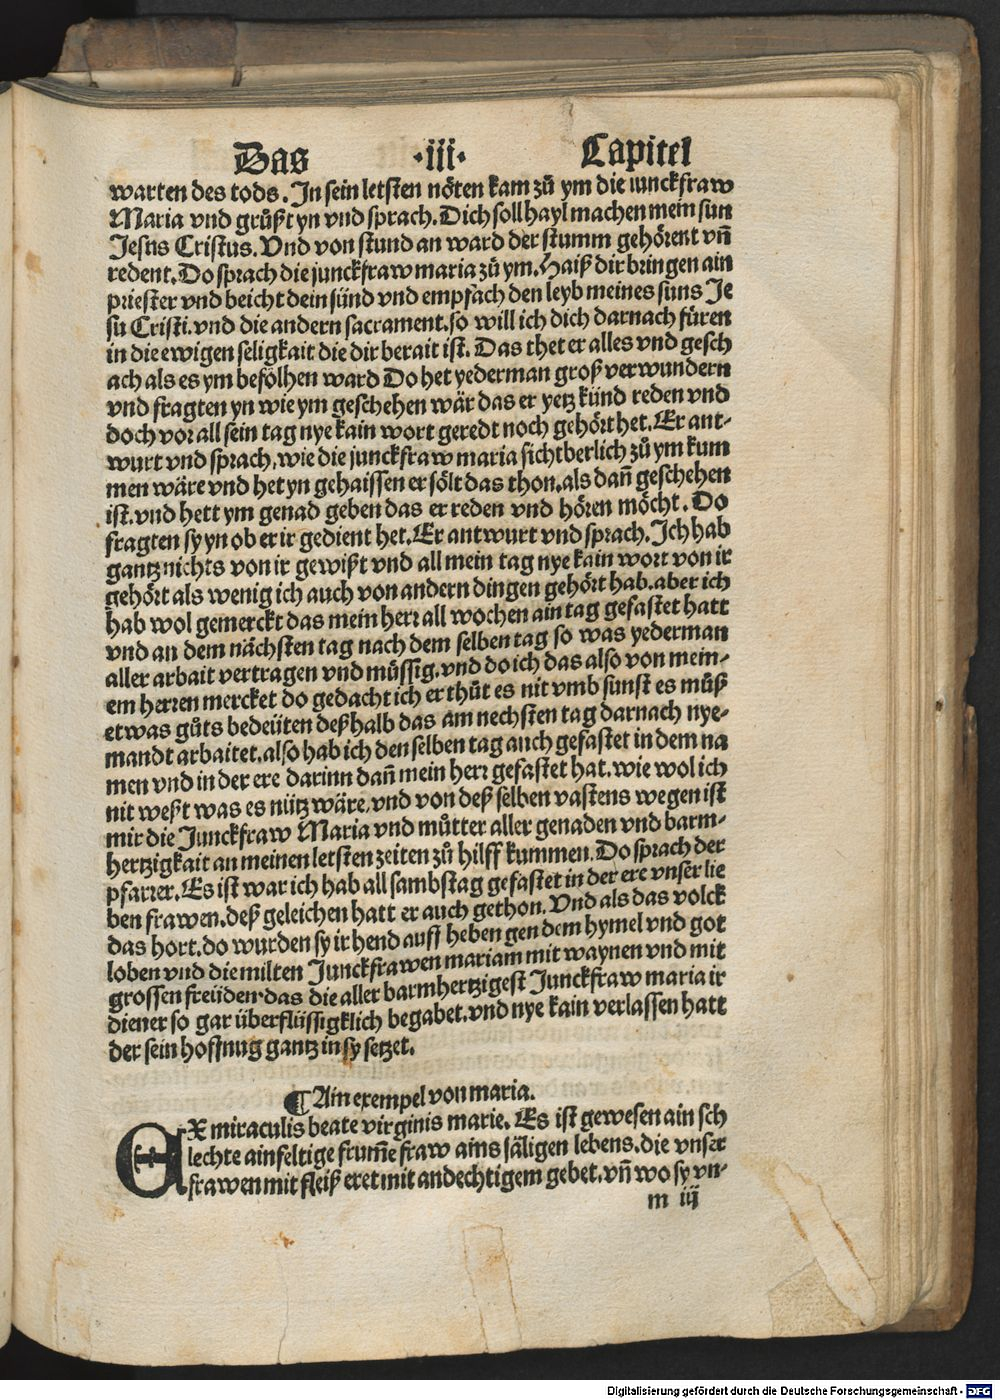 Das ·iii· Capitel
warten des tods. In sein letsten nöten kam zů ym die iunckfraw
Maria vnd grüßt yn vnd sprach. Dich soll hayl machen mein sun
Jesus Cristus. Vnd von stund an ward der stumm gehörent vn̄
redent. Do sprach die junckfraw maria zů ym. Haiß dir bringen ain
priester vnd beicht dein sünd vnd empfach den leyb meines suns Je
su Cristi. vnd die andern sacrament. so will ich dich darnach füren
in die ewigen seligkait die dir berait ist. Das thet er alles vnd gesch
ach als es ym befolhen ward Do het yederman groß verwundern
vnd fragten yn wie ym geschehen wär das er yetz künd reden vnd
doch vor all sein tag nye kain wort geredt noch gehört het. Er ant-
wurt vnd sprach, wie die junckfraw maria sichtberlich zů ym kum
men wäre vnd het yn gehaissen er sölt das thon. als dan̄ geschehen
ist. vnd hett ym genad geben das er reden vnd hören möcht. Do
fragten sy yn ob er ir gedient het. Er antwurt vnd sprach. Ich hab
gantz nichts von ir gewißt vnd all mein tag nye kain wort von ir
gehört als wenig ich auch von andern dingen gehört hab. aber ich
hab wol gemerckt das mein herr all wochen ain tag gefastet hatt
vnd an dem nächsten tag nach dem selben tag so was yederman
aller arbait vertragen vnd müssig. vnd do ich das also von mein-
em herren mercket do gedacht ich er thůt es nit vmb sunst es můß
etwas gůts bedeüten deßhalb das am nechsten tag darnach nye-
mandt arbaitet. also hab ich den selben tag auch gefastet in dem na
men vnd in der ere darinn dan̄ mein herr gefastet hat. wie wol ich
nit weßt was es nütz wäre. vnd von deß selben vastens wegen ist
mir die Junckfraw Maria vnd můtter aller genaden vnd barm-
hertzigkait an meinen letsten zeiten zů hilff kummen. Do sprach der
pfarrer. Es ist war ich hab all sambstag gefastet in der ere vnser lie
ben frawen. deß geleichen hatt er auch gethon. Vnd als das volck
das hort. do wurden sy ir hend auff heben gen dem hymel vnd got
loben vnd die milten Junckfrawen mariam mit waynen vnd mit
grossen freüden. das die aller barmhertzigest Junckfraw maria ir
diener so gar überflüssigklich begabet. vnd nye kain verlassen hatt
der sein hoffnug gantz in sy setzet.
¶ Ain exempel von maria.
EX miraculis beate virginis marie. Es ist gewesen ain sch
lechte ainfeltige frum̄e fraw ains säligen lebens. die vnser
frawen mit fleiß eret mit andechtigem gebet. vn̄ wo sy vn-
m iij
Digitalisierung gefördert durch die Deutsche Forschungsgemeinschaft - DFG